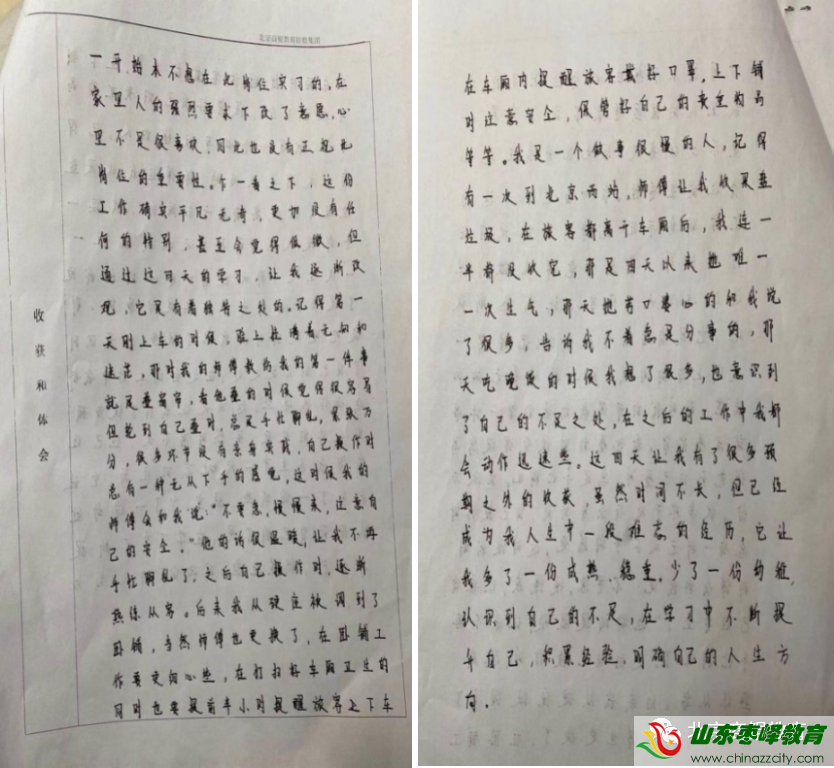 收获和体会
一开始未不想在此岗位实习的,在
家里人的强烈要求下改了意愿,心
里不是很喜欢,因此也没有正视此
岗位的重要性。乍一看之下,这份
工作确实平凡无奇,更加没有任
何的特别,甚至会觉得很微,但
通过这四天的学习,让我逐渐发
现,它是有着独特之处的。记得第一
天刚上车的时候,脸上挂满着无知和
迷茫,那时我的师傅教的我的第一件事
就是叠窗帘,看他叠的时候觉得很容易
但轮到自己叠时,总是手忙脚乱,紧张万
分,很多环节没有亲身实践,自己操作时
总有一种无从下手的感觉,这时候我的
师傅会和我说:“不要急,慢慢来,注意自
己的安全。”他的话很温暖,让我不再
手忙脚乱了,之后自己操作时,逐渐
熟练从容。后来我从硬座被调到了
卧铺,当然师傅也更换了,在卧铺工
作要更细心些,在打扫好车厢卫生的
同时也要提前半小时提醒旅客上下车
在车厢内提醒旅客戴好口罩,上下铺
时注意安全,保管好自己的贵重物品
等等。我是一个做事很慢的人,记得
有一次到北京西站,师傅让我收果盘
垃圾,在旅客都离开车厢后,我连一
半都没收完,那是四天以来他唯一
一次生气,那天他苦口婆心的和我说
了很多,告诉我不着急是分事的,那
天吃晚饭的时候我想了很多,也意识到
了自己的不足之处,在之后的工作中我都
会动作迅速些。这四天让我有了很多预
期之外的收获,虽然时间不长,但已经
成为我人生中一段难忘的经历,它让
我多了一份成熟、稳重,少了一份幼稚,
认识到自己的不足,在学习中不断提
升自己,积累经验,明确自己的人生方
向。
山东枣峰教育
www.chinazzcity.com